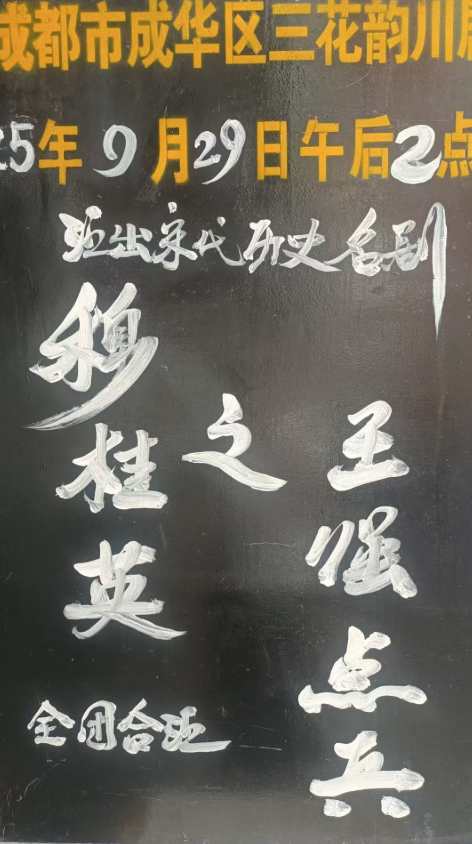 成都市成华区三花韵川剧
25年9月29日午后2点
演出宋代历史名剧
穆桂英
之
王强点兵
全团合演